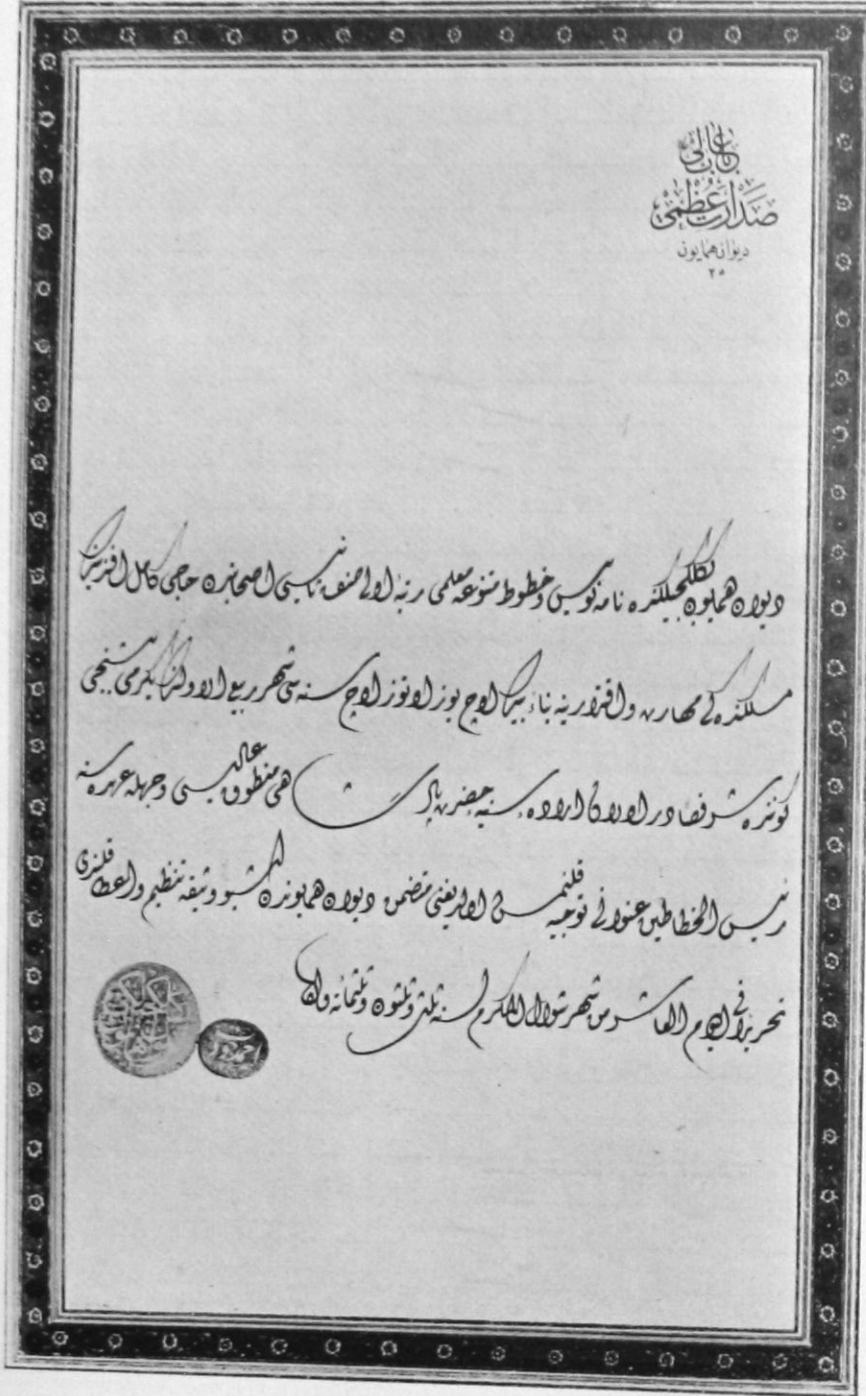 باب عالی
صدارت عظمی
دیوان همایون
۲۵
دیوان همایون بیکلکجیلکنده نامه نویس و خطوط متنوعه معلمی رتبهٔ اولی صنف ثانیسی اصحابندن حاجی کامل افندینک
مسلکنده کی مهارت و اقتدارینه بناءً بیک اوچ یوز اوتوز اوچ سنه سی شهر ربیع الاولنک یکرمی بشنجی
کوننده شرفصادر اولان ارادهٔ سنیهٔ حضرت پادشاهی منطوق عالیسی وجهله عهده سنه
رئیس الخطاطین عنوانی توجیه قلنمش اولدیغنی متضمن دیوان همایوندن اشبو وثیقه تنظیم و اعطا قلندی
تحریراً فی الیوم العاشر من شهر شوال المکرم لسنه ثلث وثلثون وثلثمائه والف